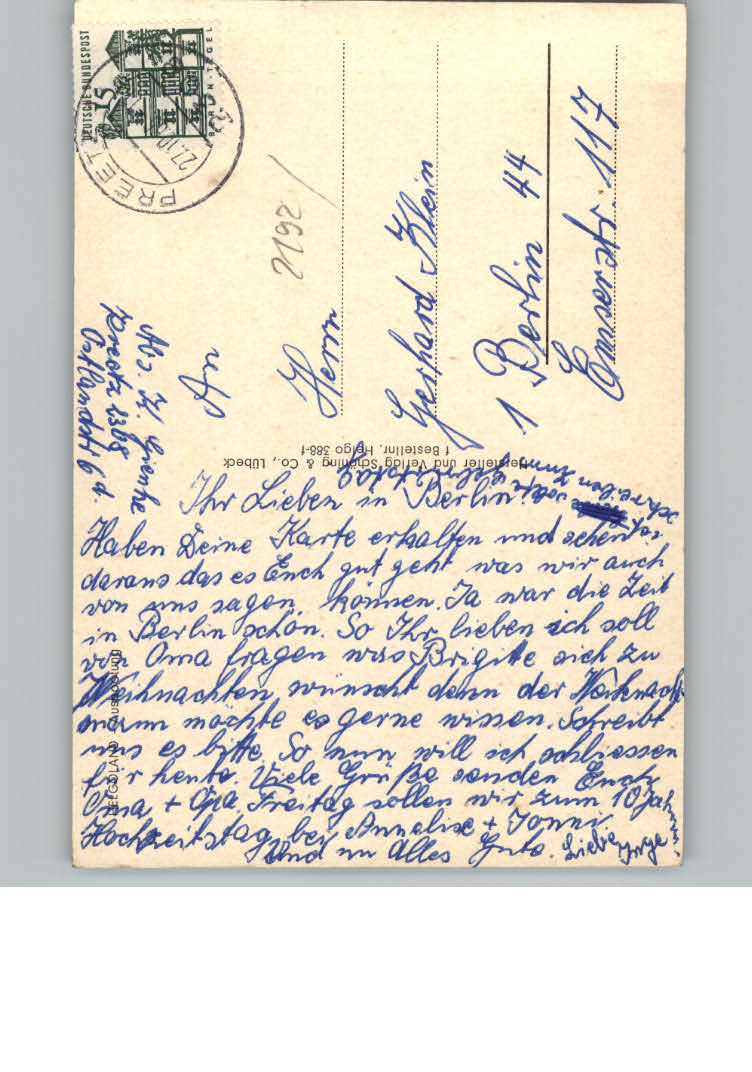 DEUTSCHE BUNDESPOST
15
BERLIN-TEGEL
PREET
27.10
2192
Herrn
Gerhard Klein
1 Berlin 44
Emserstr. 117
An
Abs. H.
Preetz 2308
Ostlandstr 6d.
Hersteller und Verlag Schöning & Co., Lübeck
Bestellnr. Helgo 388-f
HELGOLAND
Ihr Lieben in Berlin!
Haben Deine Karte erhalten und sehen
daraus das es Euch gut geht was wir auch
von uns sagen können. Ja war die Zeit
in Berlin schön. So Ihr lieben ich soll
von Oma fragen was Brigitte sich zu
Weihnachten wünscht denn der Weihnachts
mann möchte es gerne wissen. Schreibt
uns es bitte. So nun will ich schliessen
für heute. Viele Grüße senden Euch
Oma + Opa. Freitag sollen wir zum 10 Jahr.
Hochzeitstag bei Annelise + Jonni
Und nu Alles Gute. Liebe Inge
schreiben zum
Geburtstag